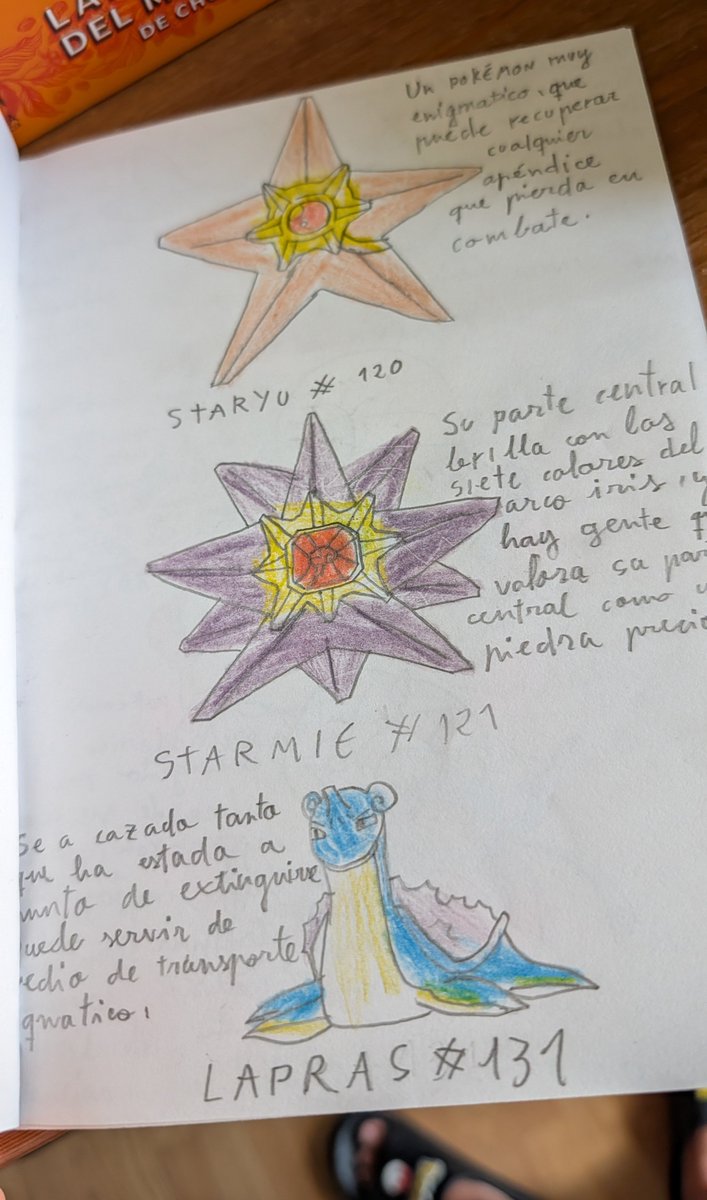 LA
DEL M
DE CH
Un POKÉMON muy
enigmatico, que
puede recuperar
cualquier
apéndice
que pierda en
combate.
STARYU # 120
Su parte central
brilla con los
siete colores del
arco iris, y
hay gente q
valora su par
central como u
piedra precio
STARMIE # 121
Se a cazada tanta
que ha estada a
punta de extinguirse
puede servir de
edio de transporte
quatico.
LAPRAS # 131